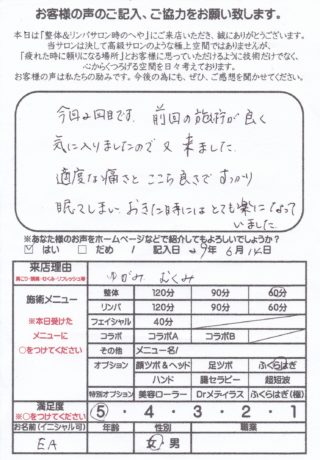 お客様の声のご記入、ご協力をお願い致します。
本日は「整体&リンパサロン時のへや」にご来店いただき、誠にありがとうございます。
当サロンは決して高級サロンのような極上空間ではありませんが、
「疲れた時に頼りになる場所」とお客様に思っていただけるように技術だけでなく、
心からくつろげる空間を日々考えております。
お客様の声は私たちの励みです。今後の為にも、ぜひ、ご感想を聞かせてください。
今回2回目です。前回の施術が良く
気に入りましたので又来ました。
適度な痛さとここち良さですっかり
眠ってしまい おきた時にはとても楽になって
いました。
※あなた様のお声をホームページなどで紹介してもよろしいでしょうか?
☑ はい □ だめ / 記入日 29年 6月 14日
来店理由
肩こり・頭痛・むくみ・リフレッシュ等
ゆがみ むくみ
施術メニュー
※本日受けた
メニューに
○をつけてください
整体 120分 90分 60分
リンパ 120分 90分 60分
フェイシャル 40分
コラボ コラボA コラボB
その他 メニュー名/
オプション 顔ツボ&ヘッド 足ツボ ふくらはぎ
ハンド 腸セラピー 超短波
特別オプション 美容ローラー Drメディラス ふくらはぎ(極)
満足度
※○をつけてください
5・4・3・2・1
お名前(イニシャル可) 年齢 性別 職業
EA 女・男